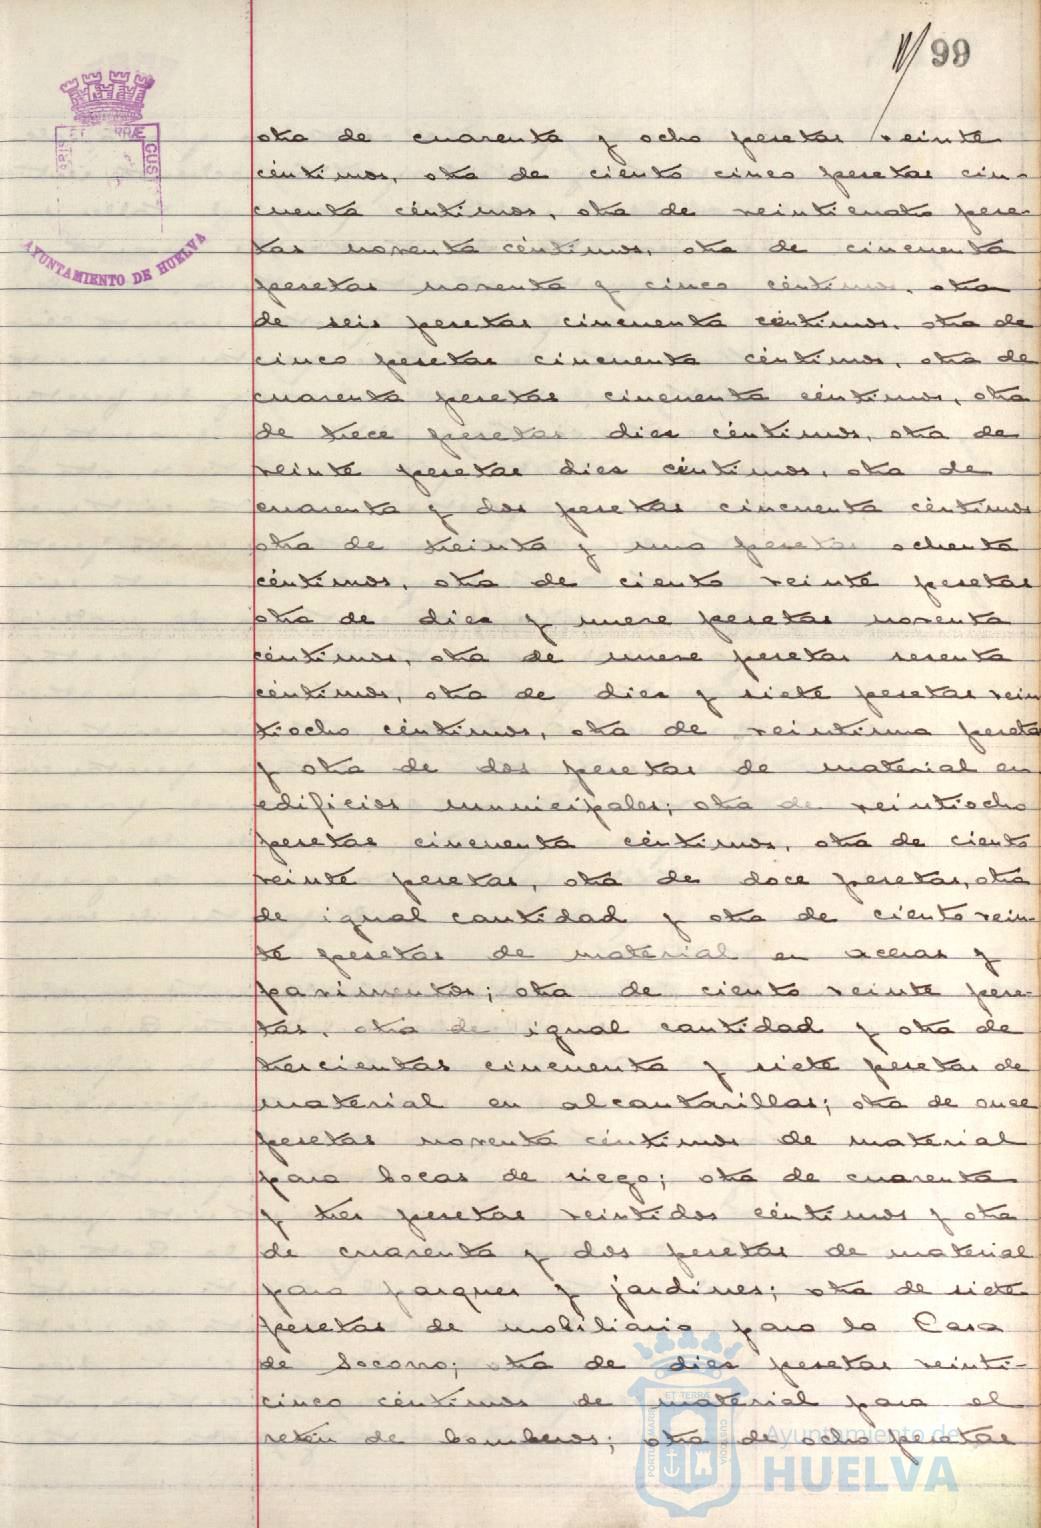 99
otra de cuarenta y ocho pesetas veinte
céntimos, otra de ciento cinco pesetas cin-
cuenta céntimos, otra de veinticuatro pese-
tas noventa céntimos, otra de cincuenta
pesetas noventa y cinco céntimos, otra
de seis pesetas cincuenta céntimos, otra de
cinco pesetas cincuenta céntimos, otra de
cuarenta pesetas cincuenta céntimos, otra
de trece pesetas diez céntimos, otra de
veinte pesetas diez céntimos, otra de
cuarenta y dos pesetas cincuenta céntimos
otra de treinta y una pesetas ochenta
céntimos, otra de ciento veinte pesetas
otra de diez y nueve pesetas noventa
céntimos, otra de nueve pesetas sesenta
céntimos, otra de diez y siete pesetas vein
tiocho céntimos, otra de veintiuna peseta
y otra de dos pesetas de material en
edificios municipales; otra de veintiocho
pesetas cincuenta céntimos, otra de ciento
veinte pesetas, otra de doce pesetas, otra
de igual cantidad y otra de ciento vein-
te pesetas de material en aceras y
pavimentos; otra de ciento veinte pese-
tas, otra de igual cantidad y otra de
trescientas cincuenta y siete pesetas de
material en alcantarillas; otra de once
pesetas noventa céntimos de material
para bocas de riego; otra de cuarenta
y tres pesetas veintidos céntimos y otra
de cuarenta y dos pesetas de material
para parques y jardines; otra de siete
pesetas de mobiliario para la Casa
de Socorro; otra de diez pesetas veinti-
cinco céntimos de material para el
retén de bomberos; otra de ocho pesetas
AYUNTAMIENTO DE HUELVA
Ayuntamiento de
HUELVA